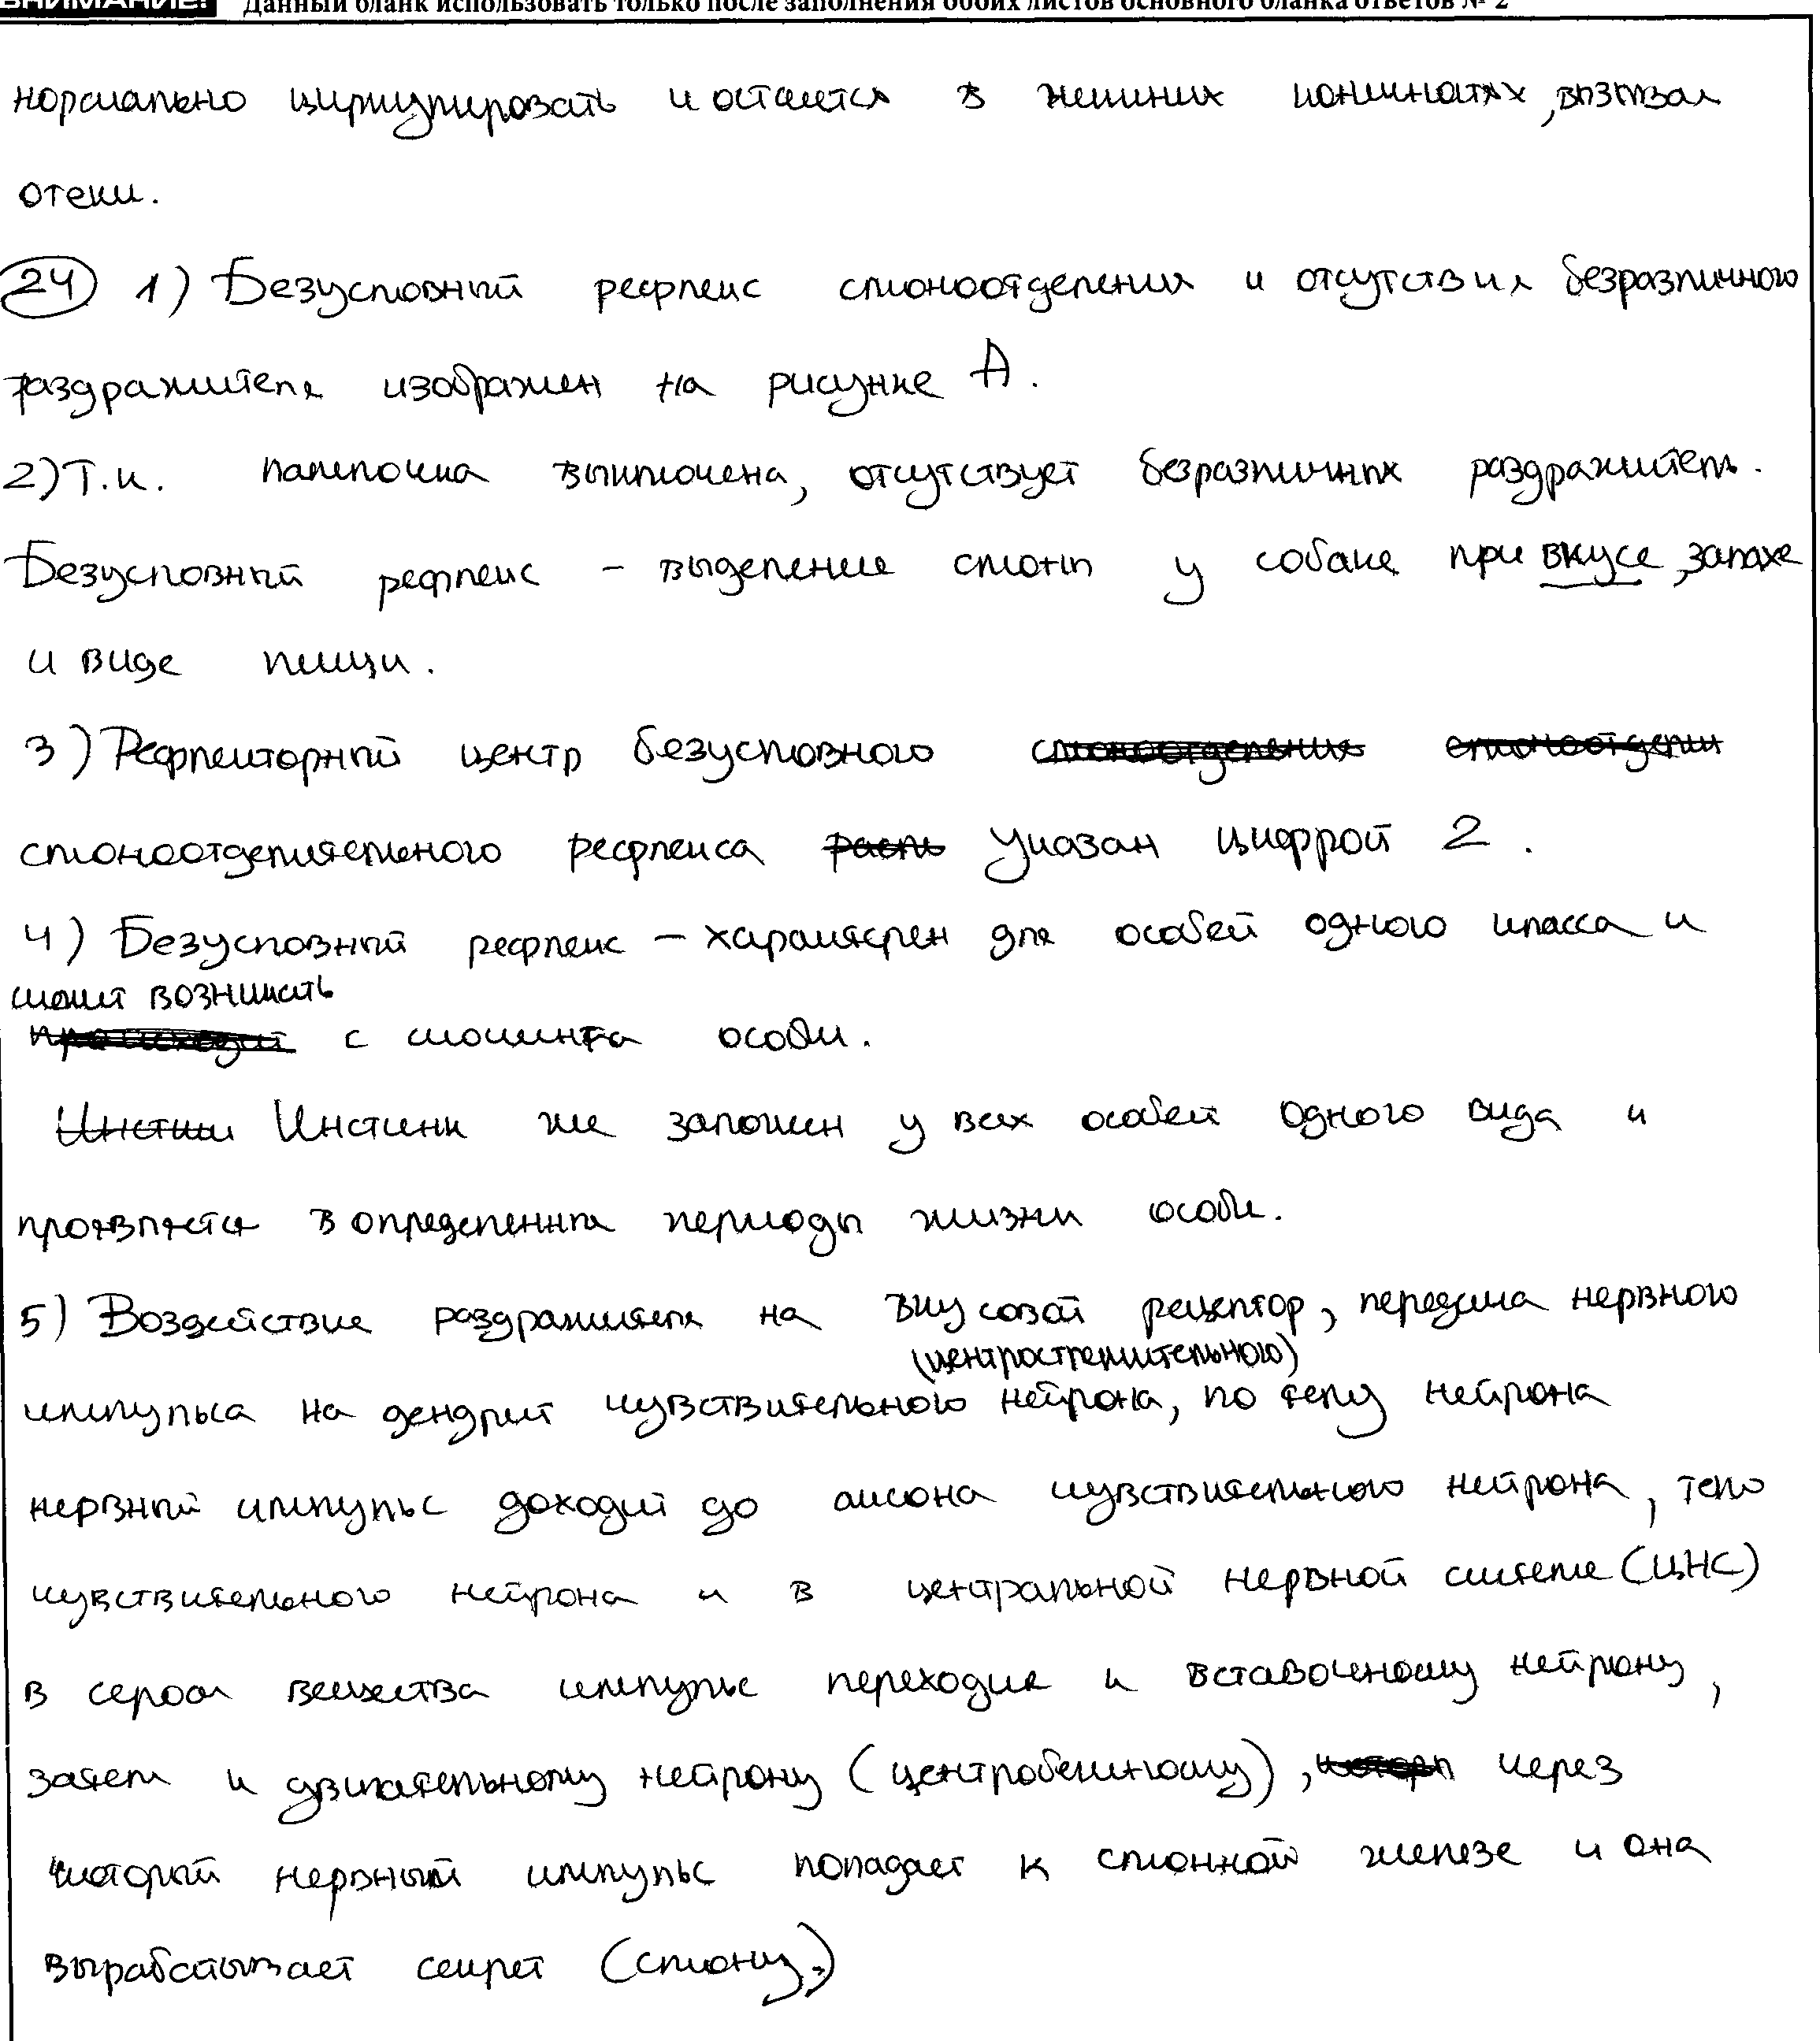 ВНИМАНИЕ! Данный бланк использовать только после заполнения обоих листов основного бланка ответов № 2
нормально циркулировать и остается в нижних конечностях, вызывая
отеки.
24 1) Безусловный рефлекс слюноотделения и отсутствия безразличного
раздражителя изображен на рисунке А.
2) Т.к. лампочка выключена, отсутствует безразличных раздражитель.
Безусловный рефлекс – выделение слюны у собаке при вкусе, запахе
и виде пищи.
3) Рефлекторный центр безусловного
слюноотделительного рефлекса указан цифрой 2.
4) Безусловный рефлекс – характерен для особей одного класса и
может возникать
с момента особи.
Инстинк же заложен у всех особей одного вида и
проявляется в определенные периоды жизни особи.
5) Воздействие раздражителя на вкусовой рецептор, передача нервного
(центростремительного)
импульса на дендрит чувствительного нейрона, по телу нейрона
нервный импульс доходит до аксона чувствительного нейрона, тело
чувствительного нейрона и в центральной нервной системе (ЦНС)
в сером вещества импульс переходит к вставочному нейрону,
затем к двигательному нейрону (центробежному), через
который нервный импульс попадает к слюнной железе и она
вырабатывает секрет (слюну.)